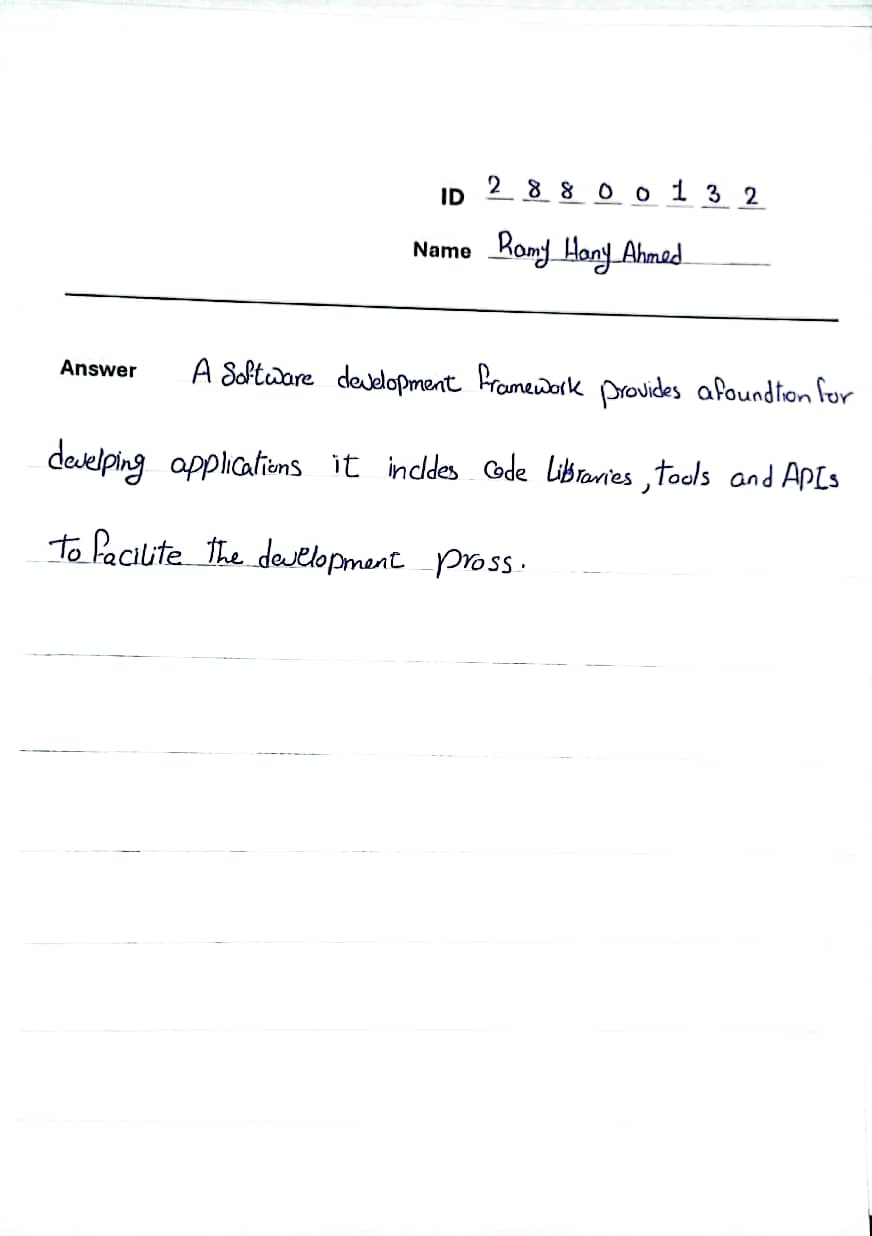 ID 2 8 8 0 0 1 3 2
Name Ramy Hany Ahmed
Answer A Software development framework provides afoundtion for
develping applications it incldes Code libraries, tools and APIs
To facilite the development pross.